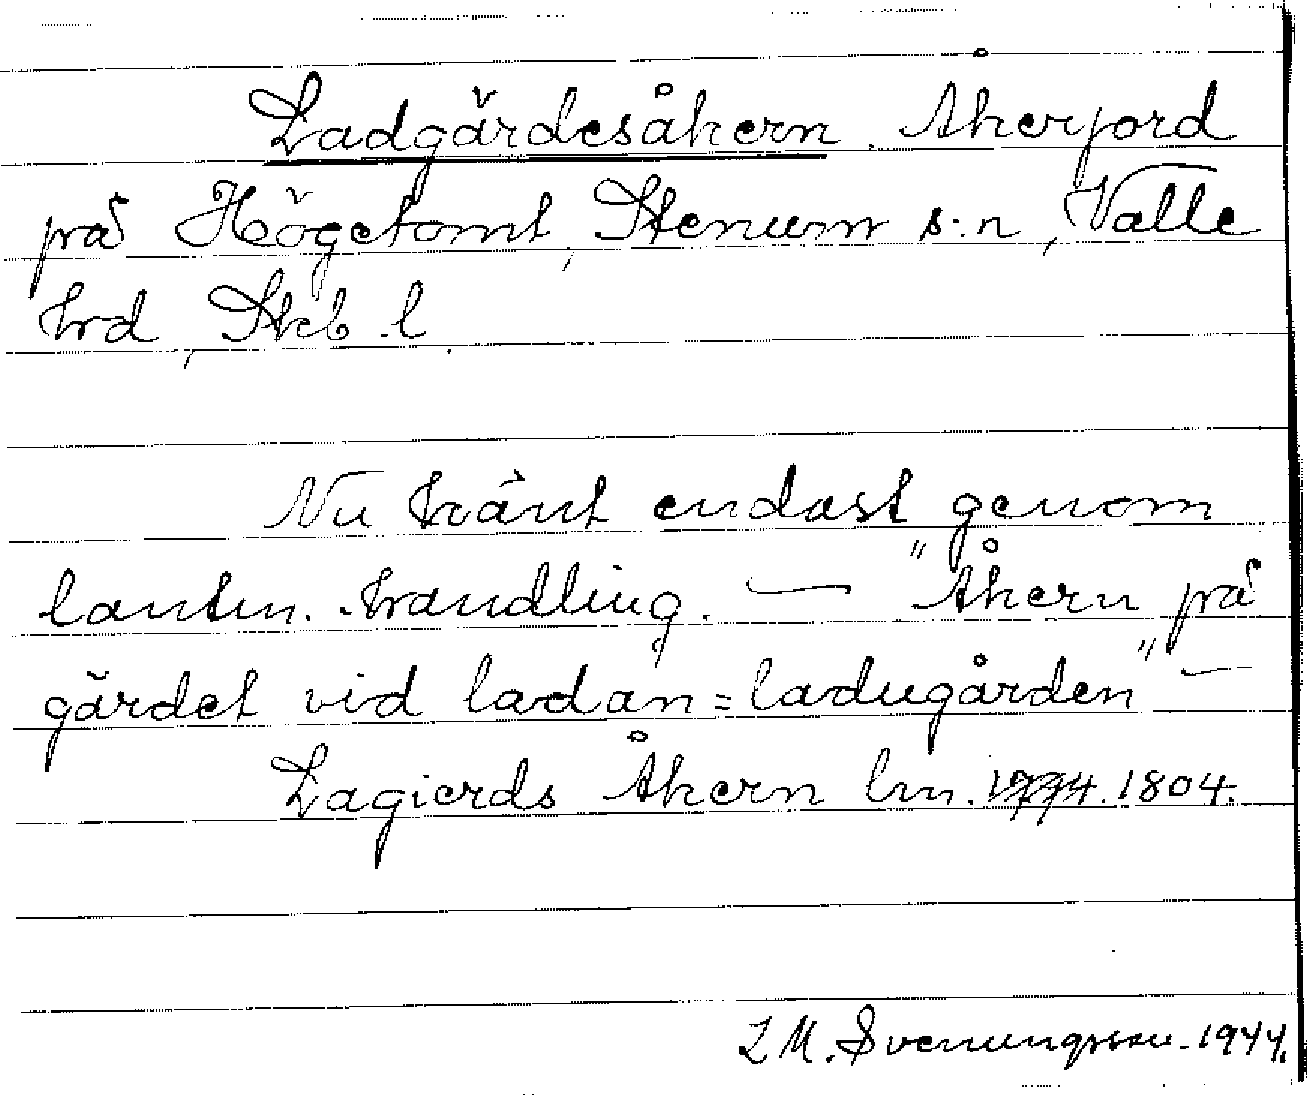 Ladgärdesåkern. Åkerjord
på Högetomt, Stenum s:n, Valle
hrd, Skb. l.
Nu känt endast genom
lantm. handling. — "Åkern på
gärdet vid ladan = ladugården" —
Lagierds Åkern lm. 1804.
L M. Svenungsson. 1944.